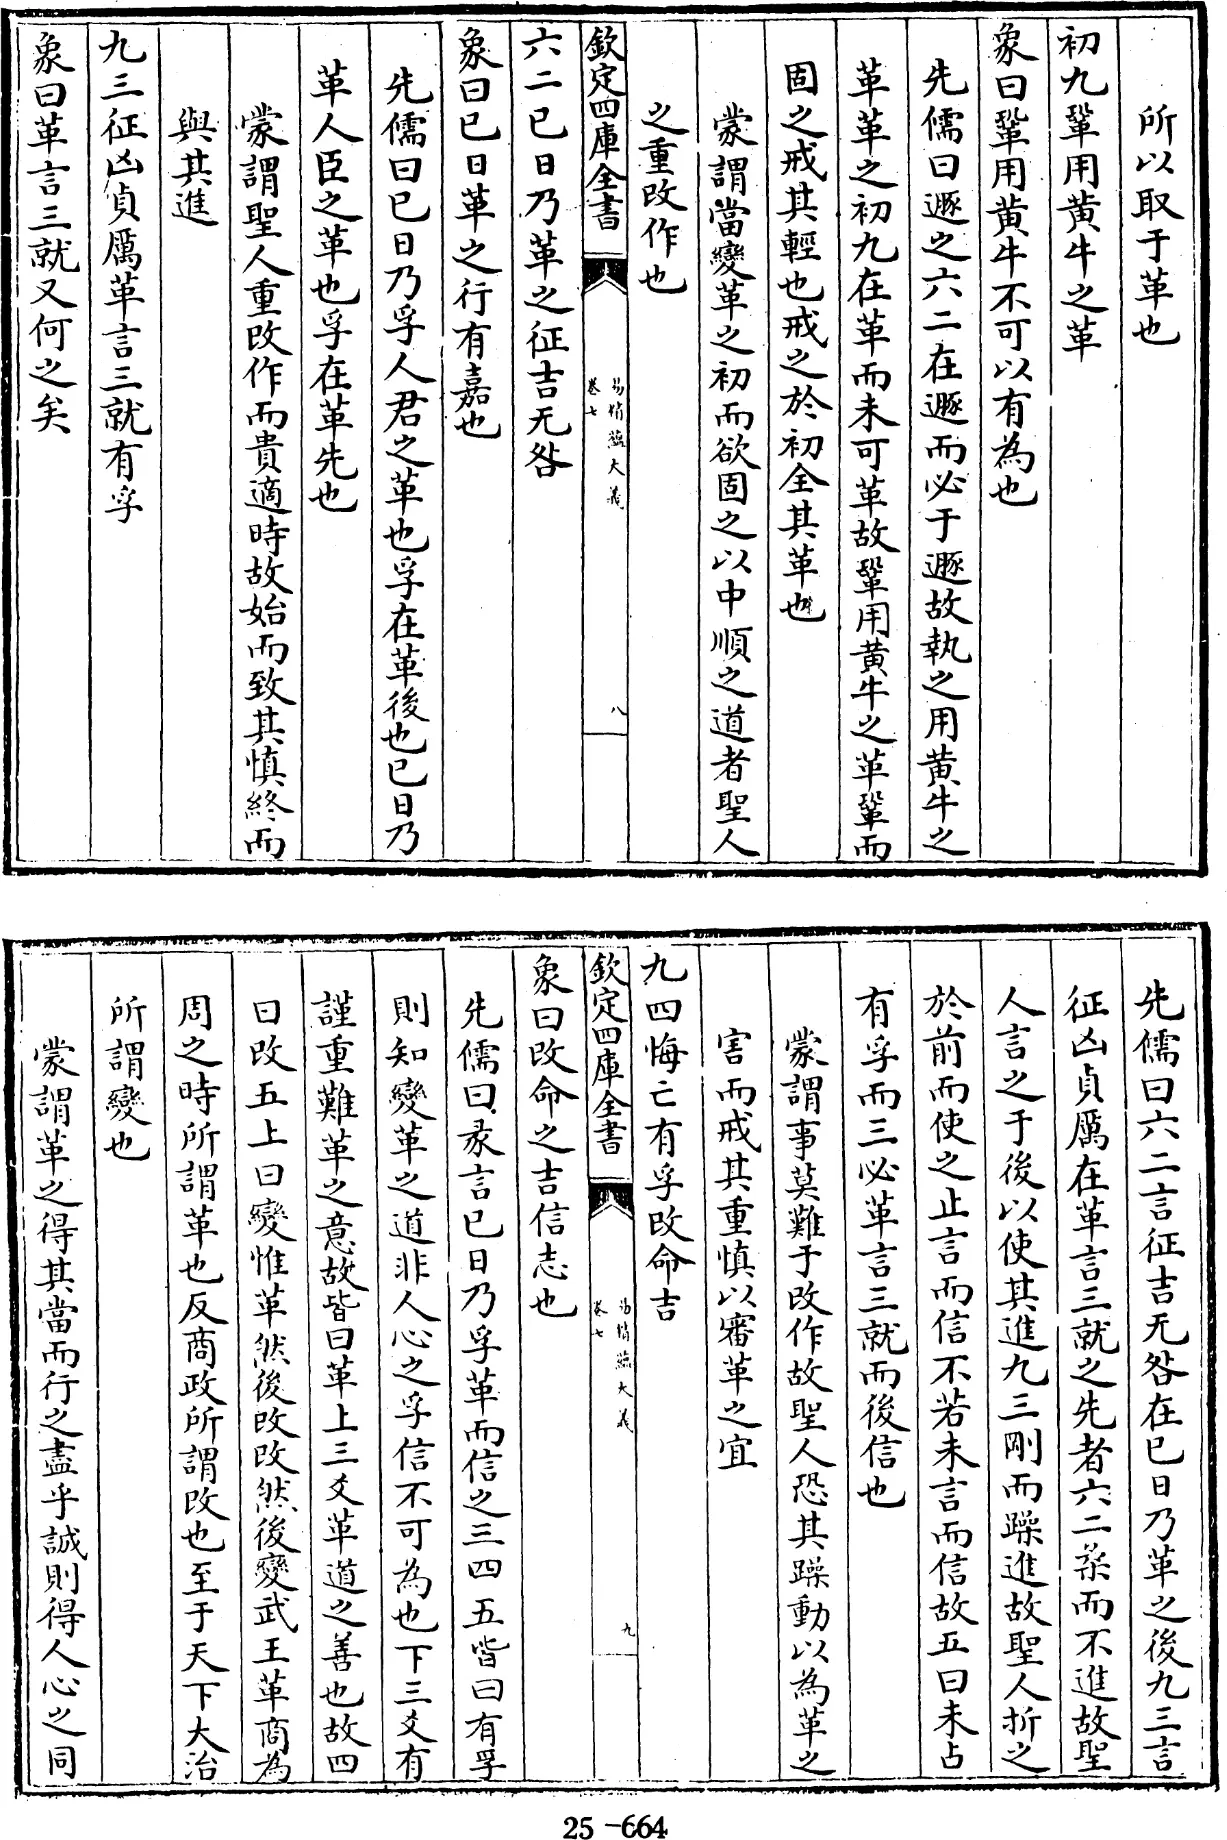 所以取于革也
初九鞏用黃牛之革
象曰鞏用黃牛不可以有為也
先儒曰遯之六二在遯而必于遯故執之用黃牛之
革革之初九在革而未可革故鞏用黃牛之革鞏而
固之戒其輕也戒之於初全其革也
蒙謂當變革之初而欲固之以中順之道者聖人
之重改作也
欽定四庫全書
易精蘊大義
卷七
八
六二已日乃革之征吉无咎
象曰已日革之行有嘉也
先儒曰已日乃孚人君之革也孚在革後也已日乃
革人臣之革也孚在革先也
蒙謂聖人重改作而貴適時故始而致其慎終而
與其進
九三征凶貞厲革言三就有孚
象曰革言三就又何之矣
先儒曰六二言征吉无咎在已日乃革之後九三言
征凶貞厲在革言三就之先者六二柔而不進故聖
人言之于後以使其進九三剛而躁進故聖人折之
於前而使之止言而信不若未言而信故五曰未占
有孚而三必革言三就而後信也
蒙謂事莫難于改作故聖人恐其躁動以為革之
害而戒其重慎以審革之宜
九四悔亡有孚改命吉
欽定四庫全書
易精蘊大義
卷七
九
象曰改命之吉信志也
先儒曰彖言已日乃孚革而信之三四五皆曰有孚
則知變革之道非人心之孚信不可為也下三爻有
謹重難革之意故皆曰革上三爻革道之善也故四
曰改五上曰變惟革然後改改然後變武王革商為
周之時所謂革也反商政所謂改也至于天下大治
所謂變也
蒙謂革之得其當而行之盡乎誠則得人心之同
25-664